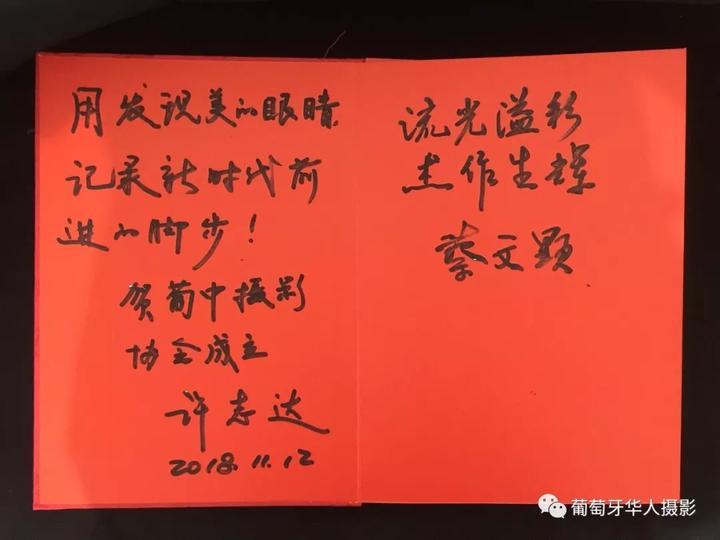 用发现美的眼睛
记录新时代前
进的脚步！
贺葡中摄影
协会成立
许志达
2018.11.12
流光溢彩
杰作生辉
蔡文显
葡萄牙华人摄影